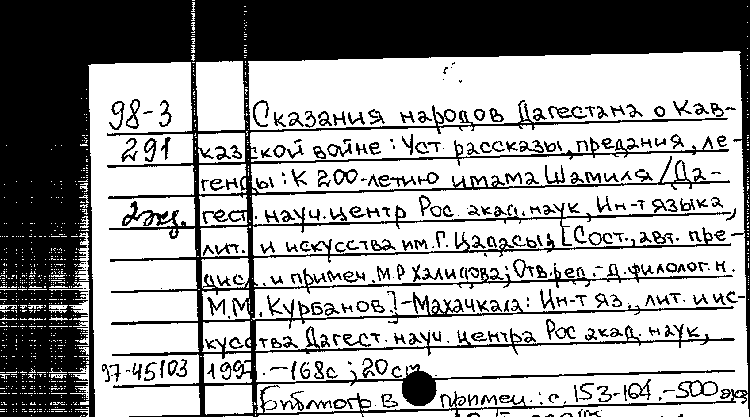 98-3 Сказания народов Дагестана о Кав-
291 казской войне : Уст. рассказы, предания, ле-
генды : К 200-летию имама Шамиля / Да-
2 экз. гест. науч. центр Рос. акад. наук, Ин-т языка,
лит. и искусства им. Г. Цадасы; [Сост., авт. пре-
дисл. и примеч. М.Р Халидова; Отв. ред. - д. филолог. н.
М.М. Курбанов.] - Махачкала : Ин-т яз., лит. и ис-
кусства Дагест. науч. центра Рос акад. наук,
97-45103 1997. - 168с ; 20см
Библиогр в примеч.: с. 153-164. - 500